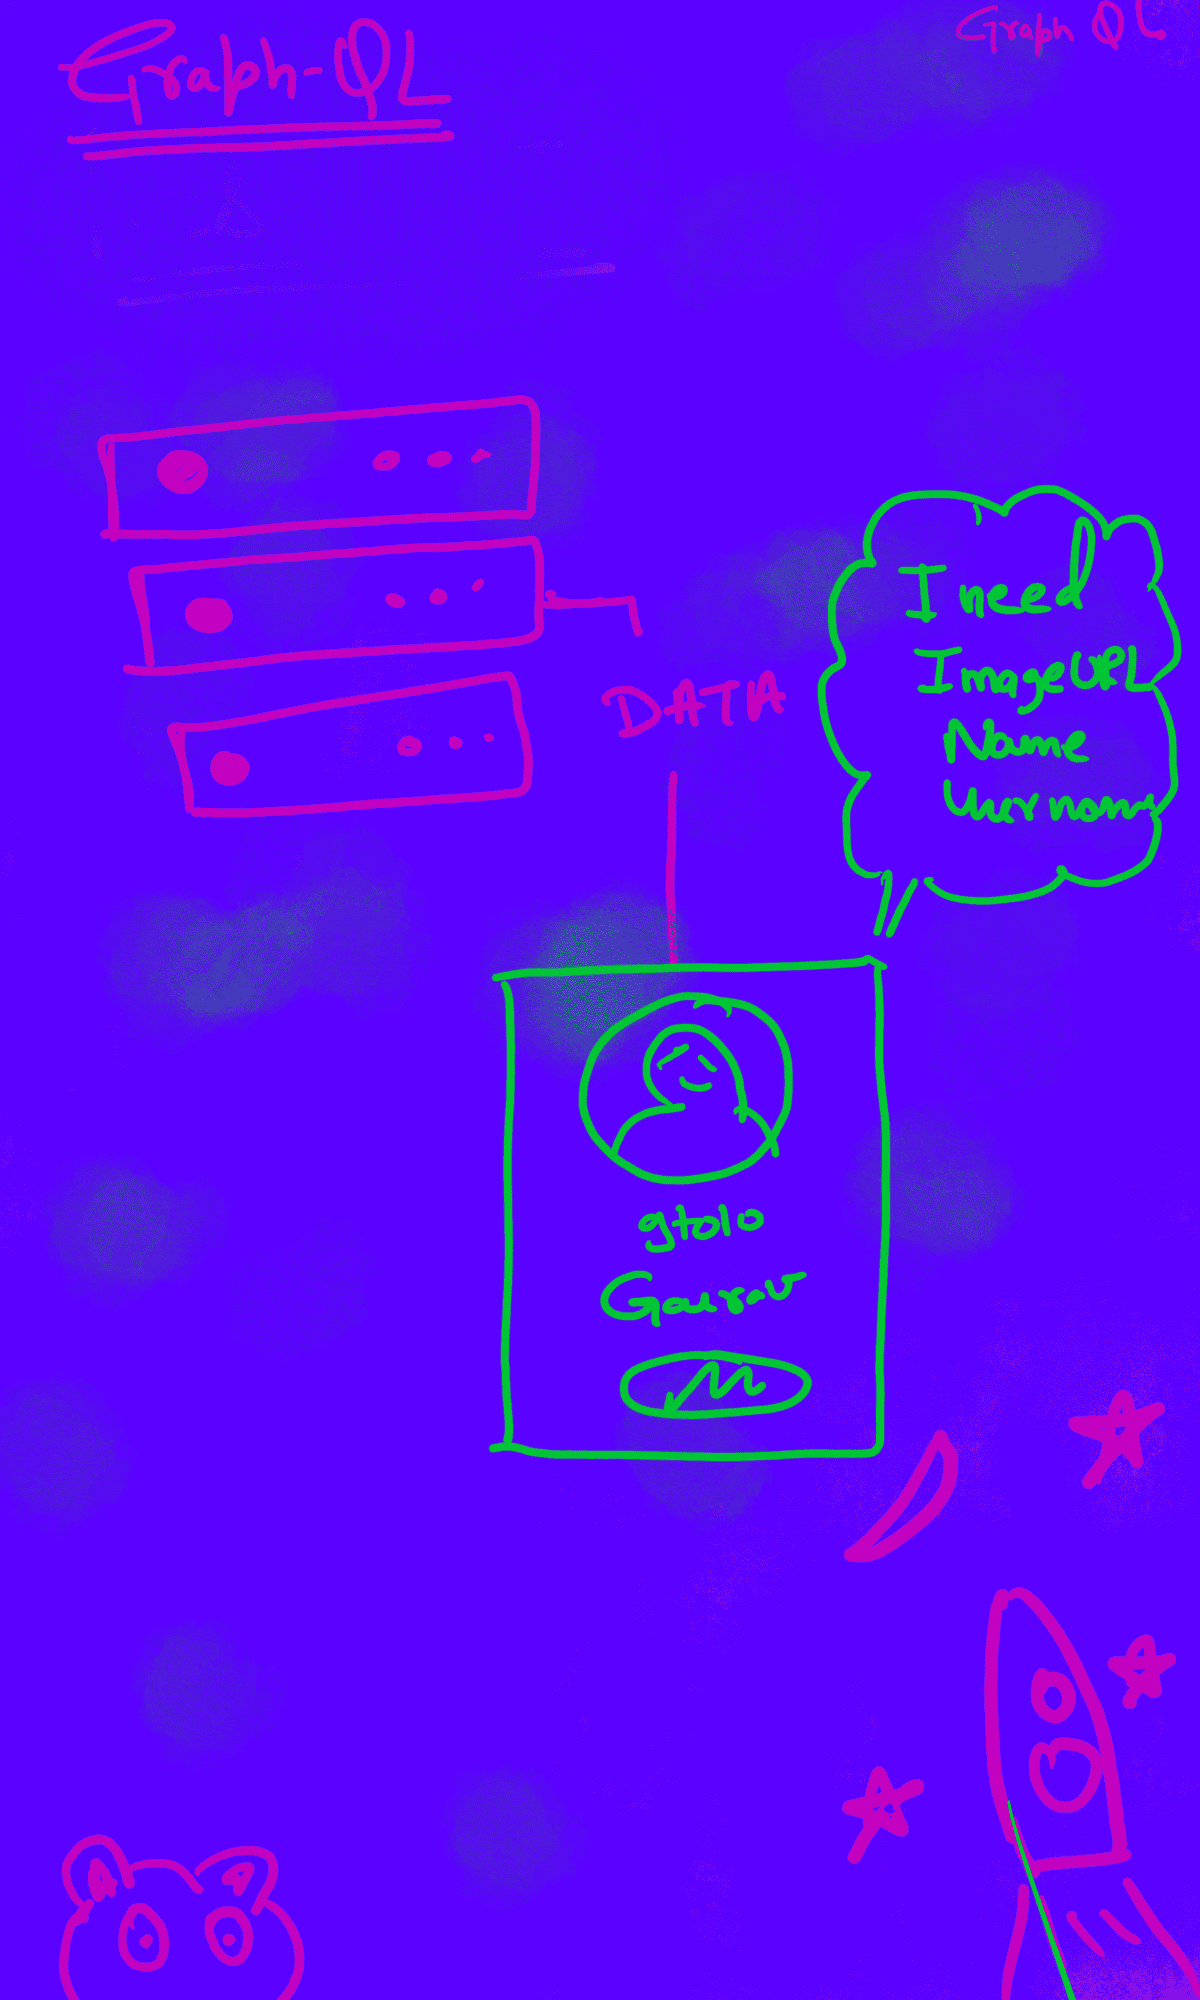 Graph-QL
Graph QL
DATA
I need
ImageURL
Name
Username
gtolo
Gaurav